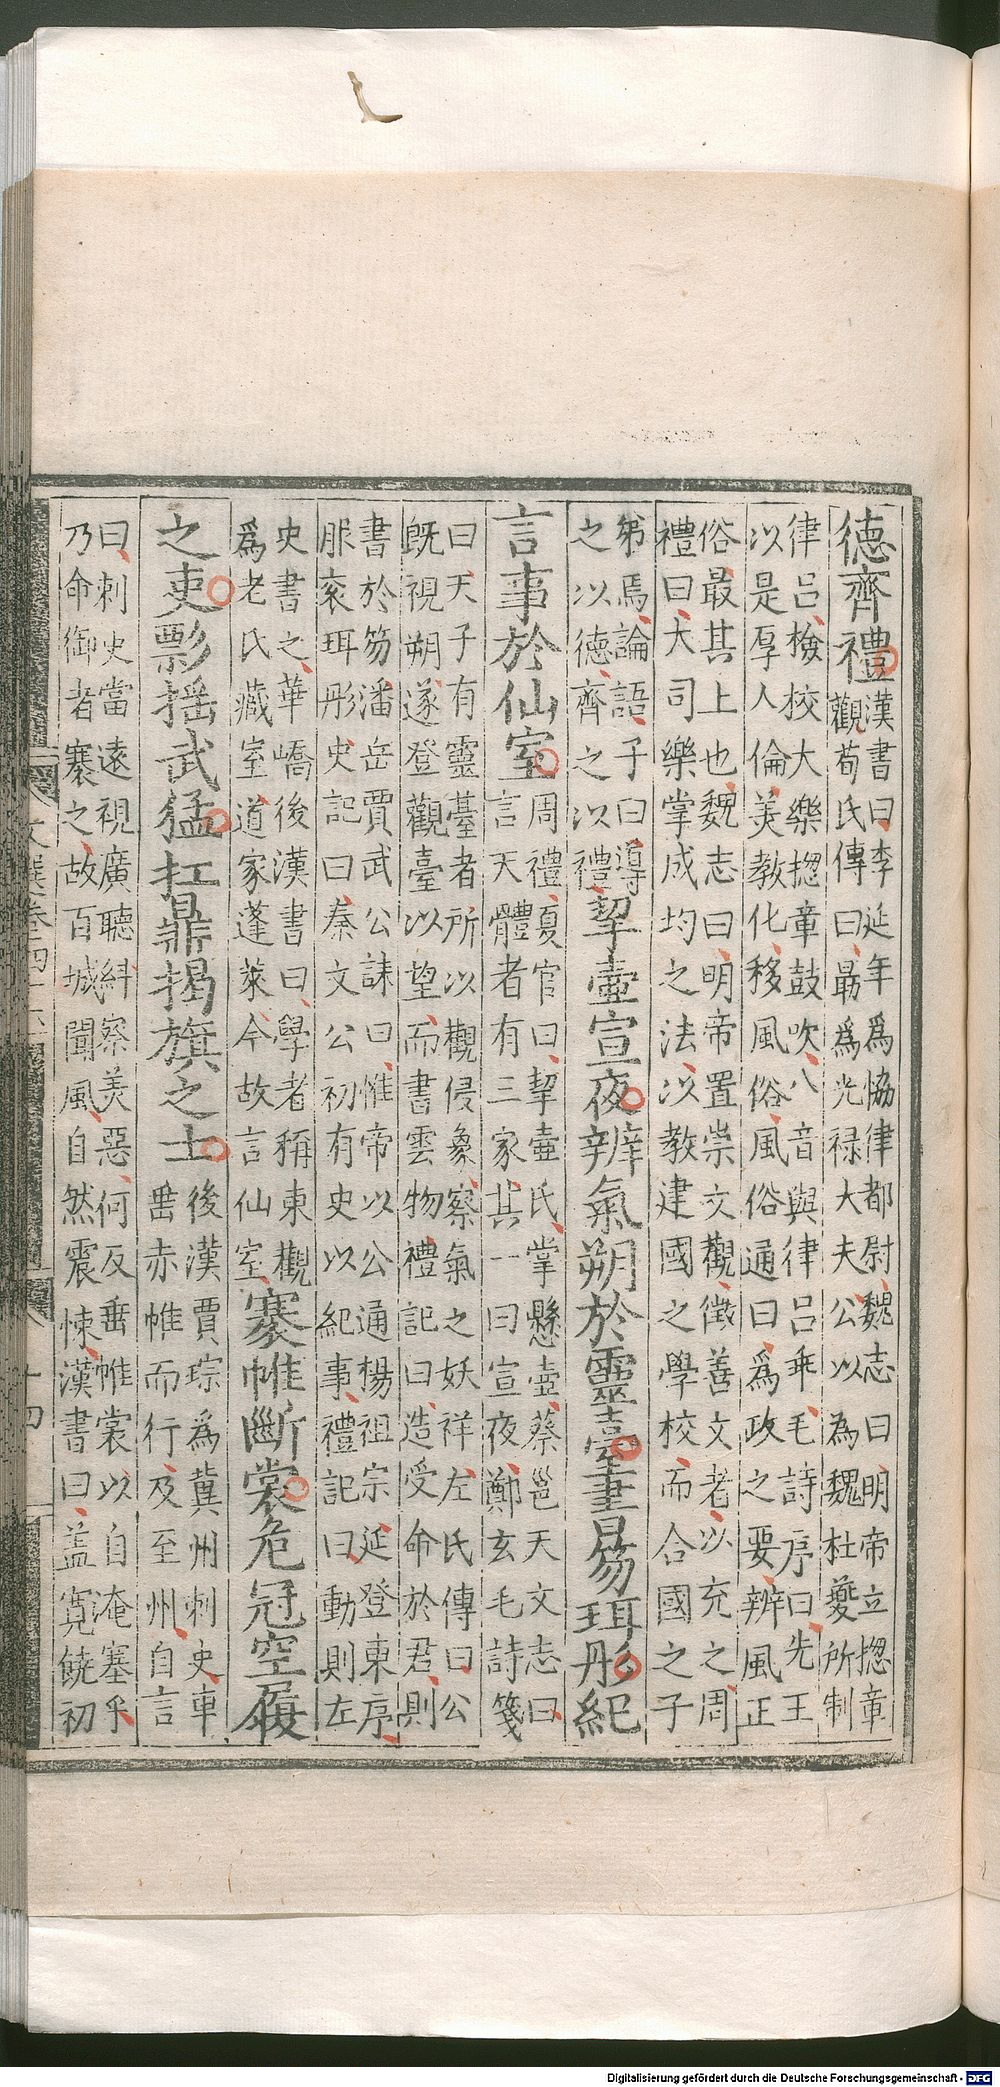 德齊禮漢書曰李延年為協律都尉魏志曰明帝立揔章
觀荀氏傳曰勗為光禄大夫公以為魏杜夔所制
律吕檢校大樂揔章鼓吹八音與律吕乖毛詩序曰先王
以是厚人倫美教化移風俗風俗通曰為政之要辨風正
俗最其上也魏志曰明帝置崇文觀徵善文者以充之周
禮曰大司樂掌成均之法以教建國之學校而合國之子
弟焉論語子曰導
之以德齊之以禮挈壺宣夜辨氣朔於靈臺書笏珥彤紀
言事於仙室周禮夏官曰挈壺氏掌懸壺蔡邕天文志曰
言天體者有三家其一曰宣夜鄭玄毛詩箋
曰天子有靈臺者所以觀侵象察氣之妖祥左氏傳曰公
既視朔遂登觀臺以望而書雲物禮記曰造受命於君則
書於笏潘岳賈武公誄曰惟帝以公通楊祖宗延登東序
服衮珥彤史記曰秦文公初有史以紀事禮記曰動則左
史書之華嶠後漢書曰學者稱東觀
為老氏藏室道家蓬萊今故言仙室褰帷斷裳危冠空履
之吏影摇武猛扛鼎揭旗之士後漢賈琮為冀州刺史車
垂赤帷而行及至州自言
曰刺史當遠視廣聽糾察美惡何反垂帷裳以自淹塞乎
乃命御者褰之故百城聞風自然震悚漢書曰盖寬饒初
文選卷四十六
十四
Digitalisierung gefördert durch die Deutsche Forschungsgemeinschaft - DFG